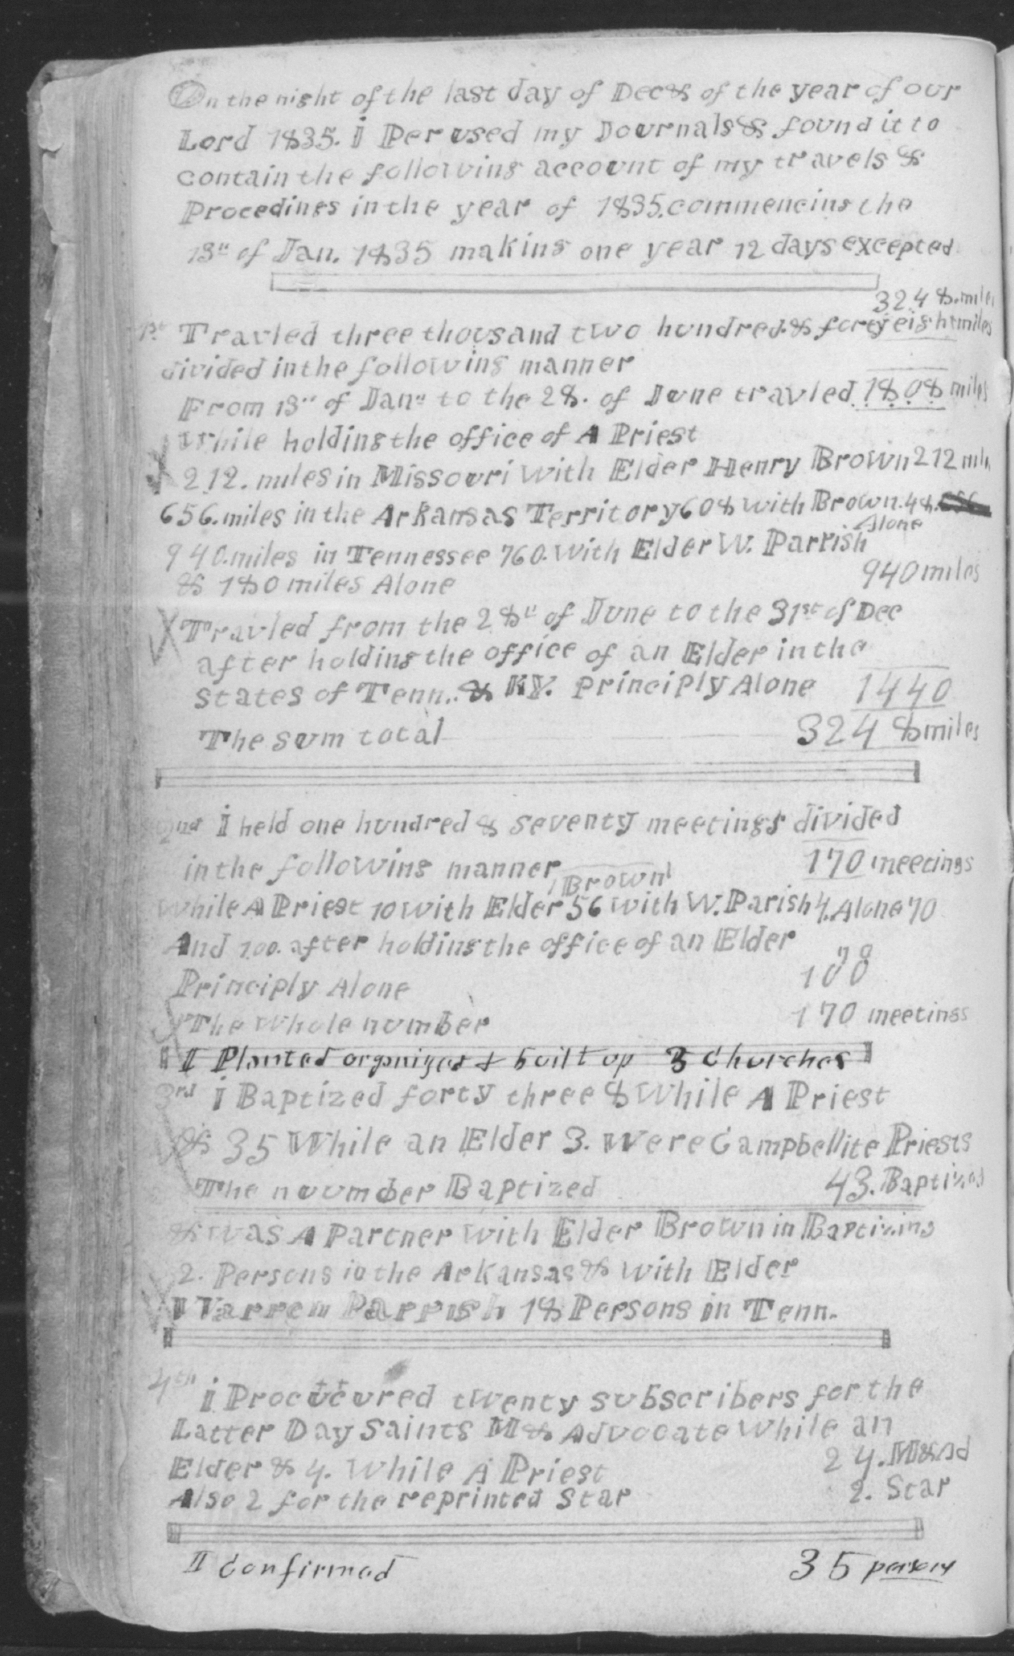 On the night of the last day of Dec & of the year of our
Lord 1835. I Perused my Journals & found it to
contain the following account of my travels &
Procedings in the year of 1835. commencing the
13" of Jan. 1835 making one year 12 days excepted
3248. miles
1st Travled three thousand two hundred & forty eight miles
divided in the following manner
From 13" of Jan" to the 28. of June travled 1808 miles
While holding the office of A Priest
212. miles in Missouri with Elder Henry Brown 212 mile
656. miles in the Arkansas Territory 608 with Brown. 48. 656
Alone
940. miles in Tennessee 760. with Elder W. Parrish
940 miles
& 180 miles Alone
Travled from the 28" of June to the 31st of Dec
after holding the office of an Elder in the
States of Tenn. & KY. principly Alone 1440
The sum total 3248 miles
2nd I held one hundred & seventy meetings divided
in the following manner 170 meetings
Brown
While A Priest 10 with Elder 56 with W. Parish 4. Alone 70
And 100. after holding the office of an Elder
70
Principly Alone 100
The whole number 170 meetings
I Planted organized & built up 3 Churches
3rd I Baptized forty three 8 While A Priest
& 35 While an Elder 3. Were Campbellite Priests
The nuumber Baptized 43. Baptized
& was A Partner with Elder Brown in Baptizing
2. Persons in the Arkansas & with Elder
Warren Parrish 18 Persons in Tenn.
4th I Procuured twenty subscribers for the
Latter Day Saints M & Advocate while an
Elder & 4. While A Priest 24. M & Ad
Also 2 for the reprinted Star 2. Star
I Confirmed 35 persons